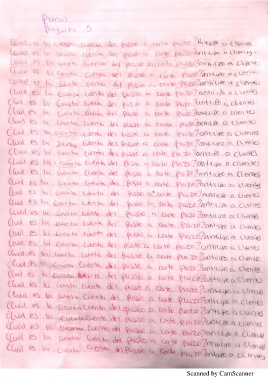 Pregunta 5
¿Cual es la cuarta cuenta del pasivo a corto plazo? anticipo a clientes
¿Cual es la cuarta cuenta del pasivo a corto plazo? anticipo a clientes
¿Cual es la cuarta cuenta del pasivo a corto plazo? anticipo a clientes
¿Cual es la cuarta cuenta del pasivo a corto plazo? anticipo a clientes
¿Cual es la cuarta cuenta del pasivo a corto plazo? anticipo a clientes
¿Cual es la cuarta cuenta del pasivo a corto plazo? anticipo a clientes
¿Cual es la cuarta cuenta del pasivo a corto plazo? anticipo a clientes
¿Cual es la cuarta cuenta del pasivo a corto plazo? anticipo a clientes
¿Cual es la cuarta cuenta del pasivo a corto plazo? anticipo a clientes
¿Cual es la cuarta cuenta del pasivo a corto plazo? anticipo a clientes
¿Cual es la cuarta cuenta del pasivo a corto plazo? anticipo a clientes
¿Cual es la cuarta cuenta del pasivo a corto plazo? anticipo a clientes
¿Cual es la cuarta cuenta del pasivo a corto plazo? anticipo a clientes
¿Cual es la cuarta cuenta del pasivo a corto plazo? anticipo a clientes
¿Cual es la cuarta cuenta del pasivo a corto plazo? anticipo a clientes
¿Cual es la cuarta cuenta del pasivo a corto plazo? anticipo a clientes
¿Cual es la cuarta cuenta del pasivo a corto plazo? anticipo a clientes
¿Cual es la cuarta cuenta del pasivo a corto plazo? anticipo a clientes
¿Cual es la cuarta cuenta del pasivo a corto plazo? anticipo a clientes
¿Cual es la cuarta cuenta del pasivo a corto plazo? anticipo a clientes
¿Cual es la cuarta cuenta del pasivo a corto plazo? anticipo a clientes
¿Cual es la cuarta cuenta del pasivo a corto plazo? anticipo a clientes
¿Cual es la cuarta cuenta del pasivo a corto plazo? anticipo a clientes
¿Cual es la cuarta cuenta del pasivo a corto plazo? anticipo a clientes
¿Cual es la cuarta cuenta del pasivo a corto plazo? anticipo a clientes
¿Cual es la cuarta cuenta del pasivo a corto plazo? anticipo a clientes
¿Cual es la cuarta cuenta del pasivo a corto plazo? anticipo a clientes
¿Cual es la cuarta cuenta del pasivo a corto plazo? anticipo a clientes
¿Cual es la cuarta cuenta del pasivo a corto plazo? anticipo a clientes
¿Cual es la cuarta cuenta del pasivo a corto plazo? anticipo a clientes
¿Cual es la cuarta cuenta del pasivo a corto plazo? anticipo a clientes
¿Cual es la cuarta cuenta del pasivo a corto plazo? anticipo a clientes
Scanned by CamScanner